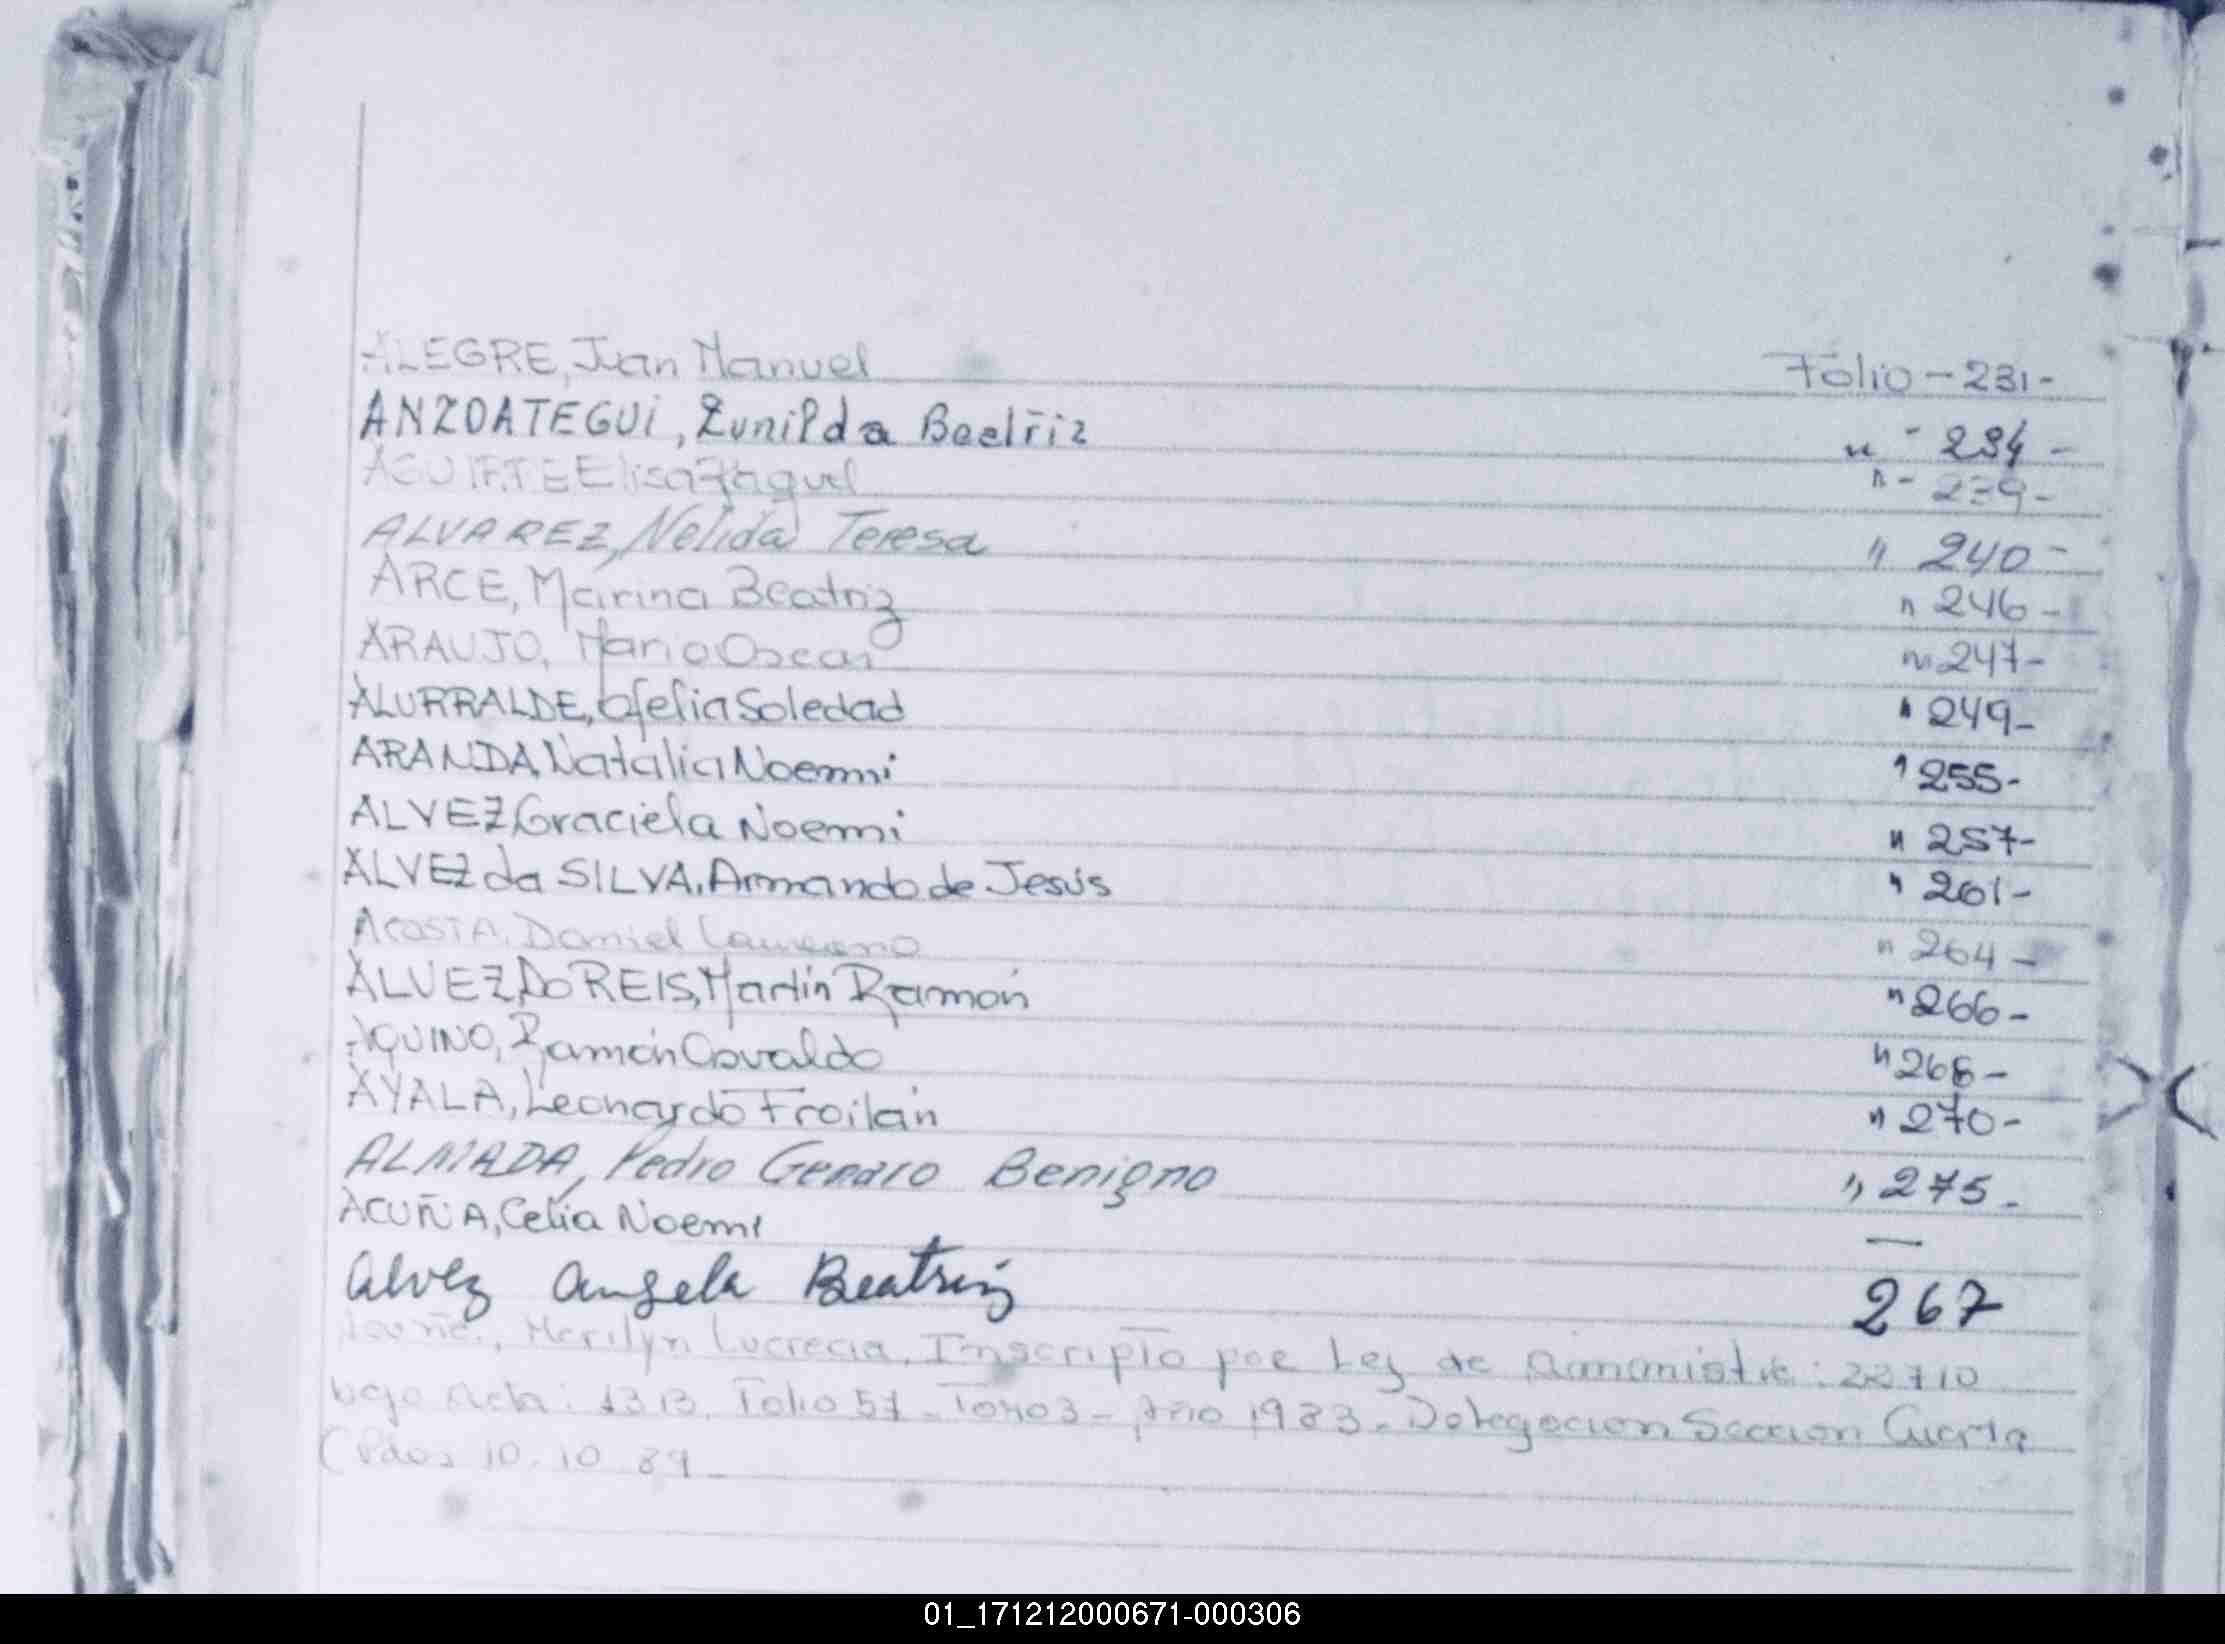 ALEGRE, Juan Manuel Folio - 231-
ANZOATEGUI, Zunilda Beatriz " - 234 -
AGUIRRE Elisa Raquel " - 239 -
ALVAREZ, Nelida Teresa " 240 -
ARCE, Marina Beatriz " 246 -
ARAUJO, Mario Oscar " 247-
ALURRALDE, Ofelia Soledad " 249-
ARANDA, Natalia Noemi " 255-
ALVEZ, Graciela Noemi " 257-
ALVEZ da SILVA, Armando de Jesús " 261-
ACOSTA, Daniel Laureano " 264 -
ALVEZ, Do REIS, Martín Ramón " 266 -
AQUINO, Ramón Osvaldo " 268 -
AYALA, Leonardo Froilán " 270 -
ALMADA, Pedro Genaro Benigno " 275 -
ACUÑA, Celia Noemi —
Alvez Angela Beatriz 267
Marilyn Lucrecia, Inscripto por Ley de : 22710
bajo Acta: 1313. Folio 57 - Tomo 3 - Año 1983 - Delegacion Seccion Cuarta
(Pdas 10. 10 89
01_171212000671-000306